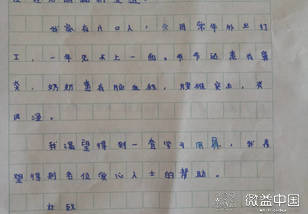 我家有八口人，父母常年外出打
工，一年见不上一面。爷爷还患有鼻
炎，奶奶患有脑血栓，腰椎突出，炎
我渴望得到一套学习用具，我希
望得到各位爱心人士的帮助。
此致
微益中国